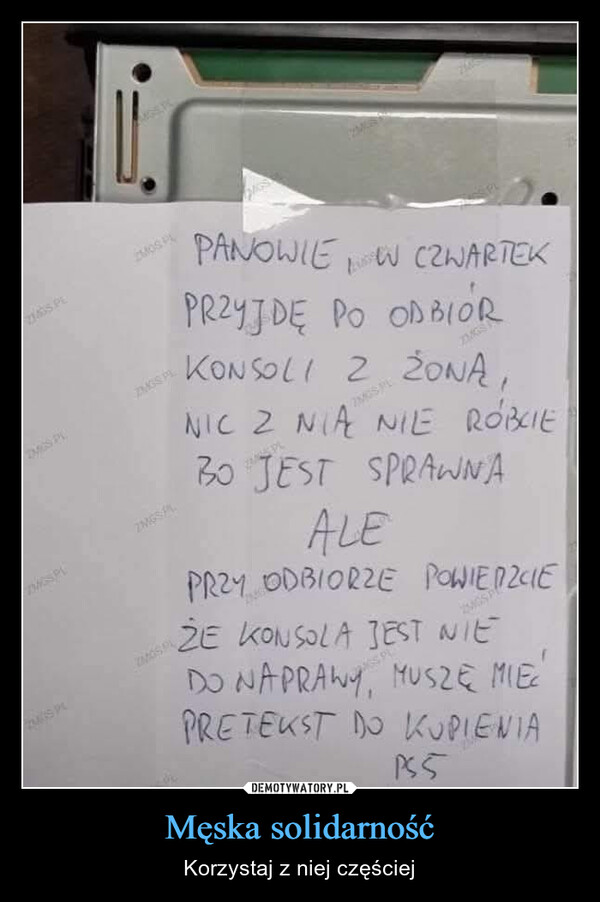 PANOWIE, W CZWARTEK
PRZYJDĘ PO ODBIÓR
KONSOLI Z ŻONĄ,
NIC Z NIĄ NIE RÓBCIE
BO JEST SPRAWNA
ALE
PRZY ODBIORZE POWIEDZCIE
ŻE KONSOLA JEST NIE
DO NAPRAWY, MUSZĘ MIEĆ
PRETEKST DO KUPIENIA
PS5
DEMOTYWATORY.PL
Męska solidarność
Korzystaj z niej częściej
ZMGS.PL